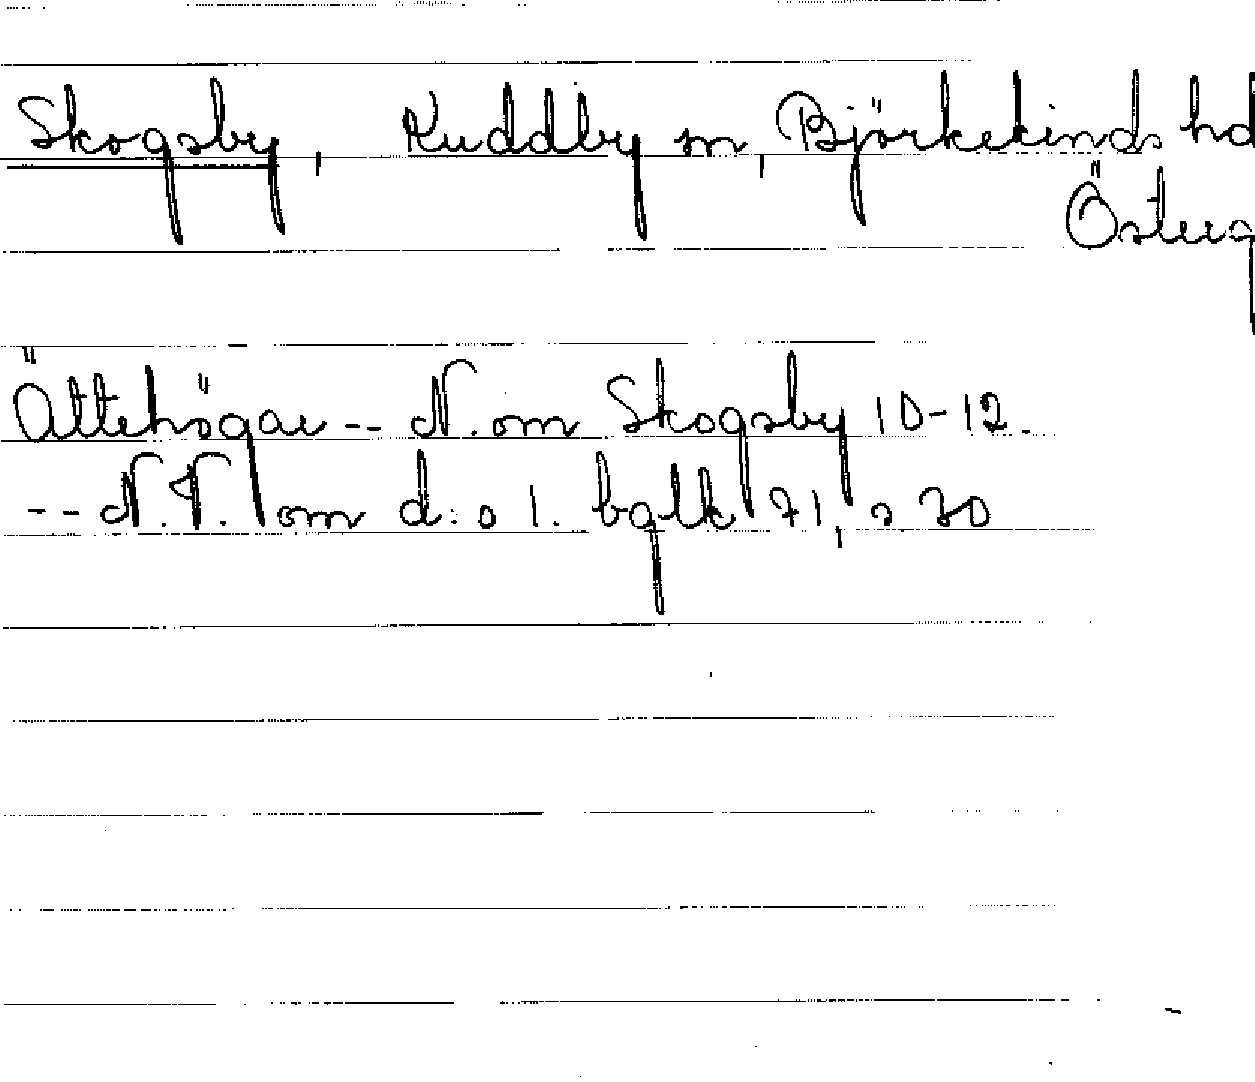 Skogsby, Kuddby sn, Björkekinds hd
Österg
Ättehögar -- N. om Skogsby 10-12.
-- N.V. om d:o 1. bglk 71, s 30